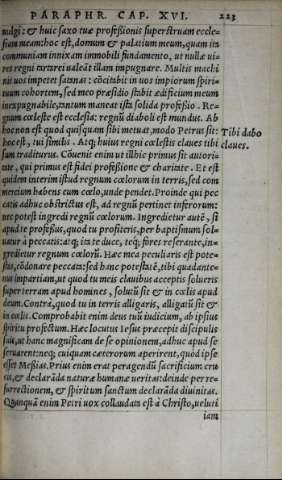 PARAPHR. CAP. XVI. 223
uulgi: & huic saxo tuæ professionis superstruam eccle-
siam meam: hoc est, domum & palatium meum, quam ita
communiam innixam immobili fundamento, ut nullæ ui-
res regni tartarei ualeāt illam impugnare. Multis machi
nis uos impetet satanas: cōcitabit in uos impiorum spiri-
tuum cohortem, sed meo præsidio stabit ædificium meum
inexpugnabile, tantum maneat ista solida professio. Re-
gnum cœleste est ecclesia: regnū diaboli est mundus. Ab
hoc non est quod quisquam sibi metuat, modo Petrus sit:
hoc est, tui similis. Atq; huius regni cœlestis claues tibi
sum traditurus. Cōuenit enim ut illhic primus sit autori-
tate, qui primus est fidei professione & charitate. Et est
quidem interim istud regnum cœlorum in terris, sed com
mercium habens cum cœlo, unde pendet. Proinde qui pec
catis adhuc obstrictus est, ad regnū pertinet inferorum:
nec potest ingredi regnū cœlorum. Ingredietur autē, si
apud te professus, quod tu profiteris, per baptismum sol-
uatur à peccatis: atq; ita te duce, teq; fores reserante, in-
gredietur regnum cœlorū. Hæc mea peculiaris est pote-
stas, cōdonare peccata: sed hanc potestatē, tibi quadante-
nus impartiam, ut quod tu meis clauibus acceptis solueris
super terram apud homines, solutū sit & in cœlis apud
deum. Contrà, quod tu in terris alligaris, alligatū sit &
in cœlis. Comprobabit enim deus tuū iudicium, ab ipsius
spiritu profectum. Hæc locutus Iesus præcepit discipulis
suis, ut hanc magnificam de se opinionem, adhuc apud se
seruarent: neq; cuiquam cæterorum aperirent, quòd ipse
esset Messias. Prius enim erat peragendū sacrificium cru
cis, & declarāda naturæ humanæ ueritas: deinde per re-
surrectionem, & spiritum sanctum declarāda diuinitas.
Quanquā enim Petri uox collaudata est à Christo, ueluti
iam
Tibi dabo
claues.